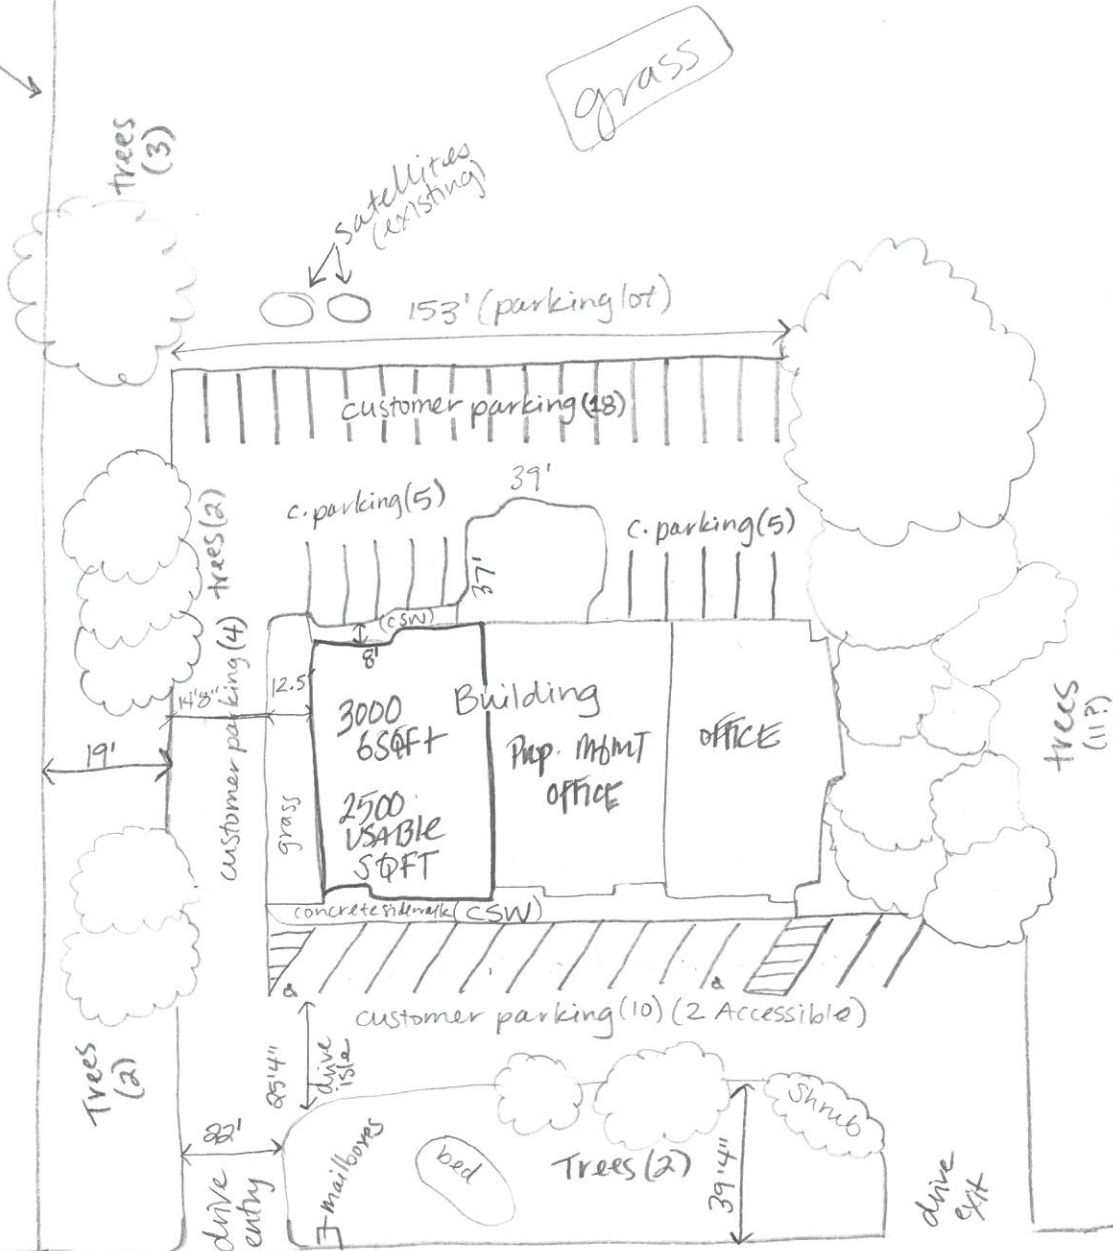 grass
trees
(3)
satellites
(existing)
153' (parking lot)
customer parking (18)
39'
c. parking (5)
c. parking (5)
37'
trees (2)
(CSW)
8'
customer parking (4)
14'8"
12.5'
Building
3000
GSQFt
2500
USABLE
SQFT
Prop. MGMT
OFFICE
OFFICE
19'
grass
trees
(11?)
concrete sidewalk (CSW)
customer parking (10) (2 Accessible)
Trees
(2)
25'4"
drive
isle
22'
drive
entry
mailboxes
bed
Trees (2)
39'4"
Shrub
drive
exit